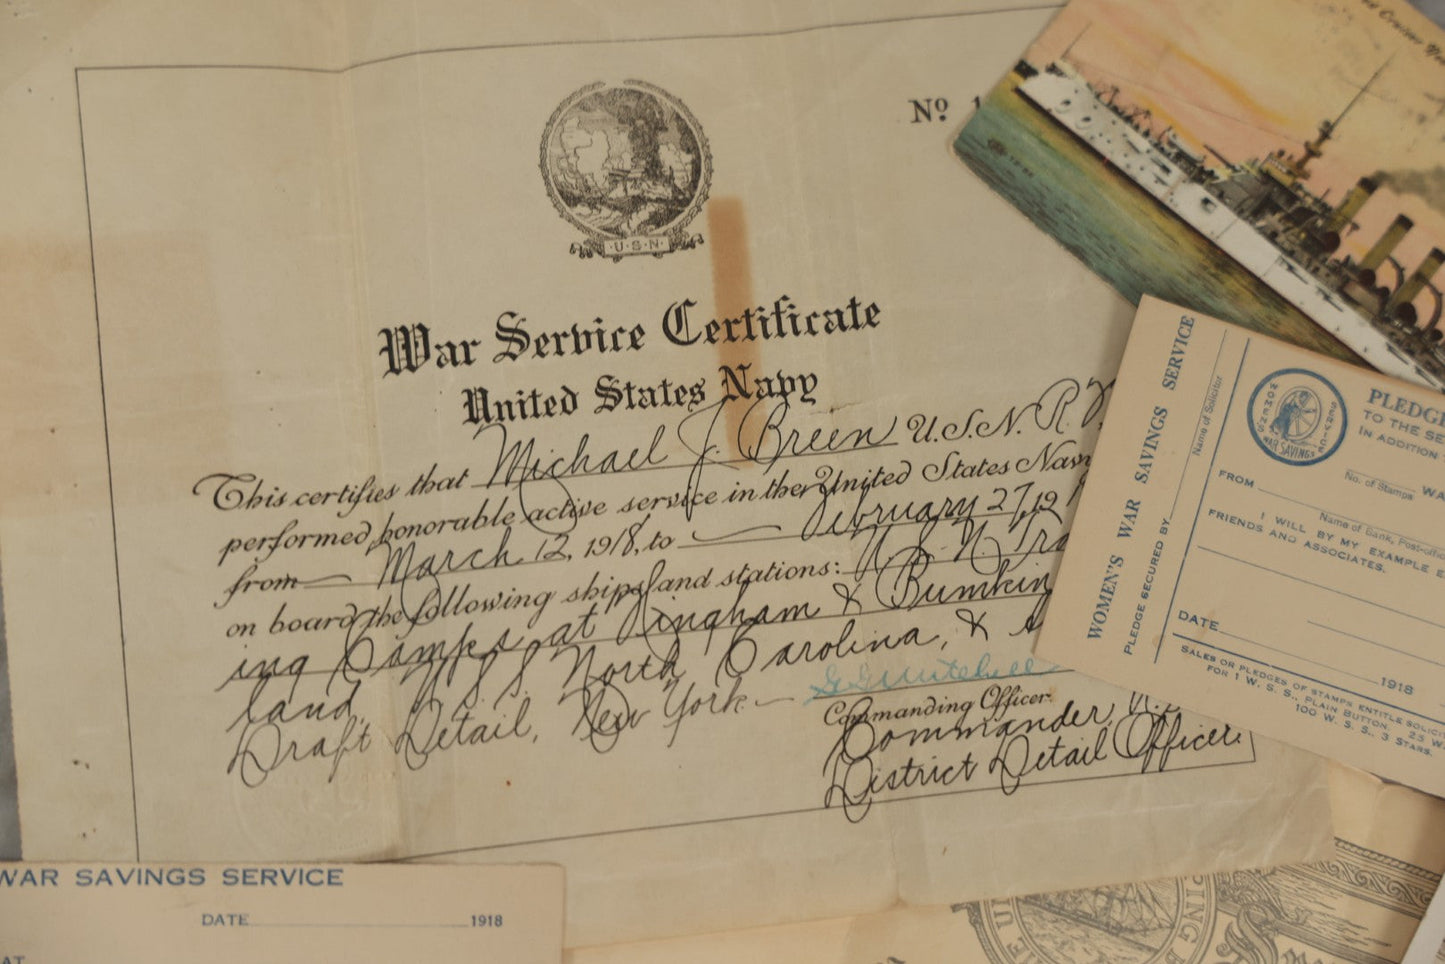 U·S·N
No. 1
War Service Certificate
United States Navy
This certifies that Michael J. Breen U.S.N.R.
performed honorable active service in the United States Navy
from March 12, 1918, to February 27, 19
on board the following ships and stations: U.S.N. Tra
ing Camps at Hingham & Bumkin
land, U S S North Carolina, &
Draft Detail, New York
Commanding Officer.
Commander, U.
District Detail Officer.
ed Cruiser
WOMEN'S WAR SAVINGS SERVICE
PLEDGE SECURED BY
Name of Solicitor
WOMENS SERVICE
WAR SAVINGS
PLEDGE
TO THE SE
IN ADDITION
No. of Stamps
WA
FROM
Name of Bank, Post-offic
I WILL BY MY EXAMPLE E
FRIENDS AND ASSOCIATES.
DATE 1918
SALES OR PLEDGES OF STAMPS ENTITLE SOLICI
FOR 1 W. S. S., PLAIN BUTTON. 25 W.
100 W. S. S., 3 STARS.
WAR SAVINGS SERVICE
DATE 1918
AT